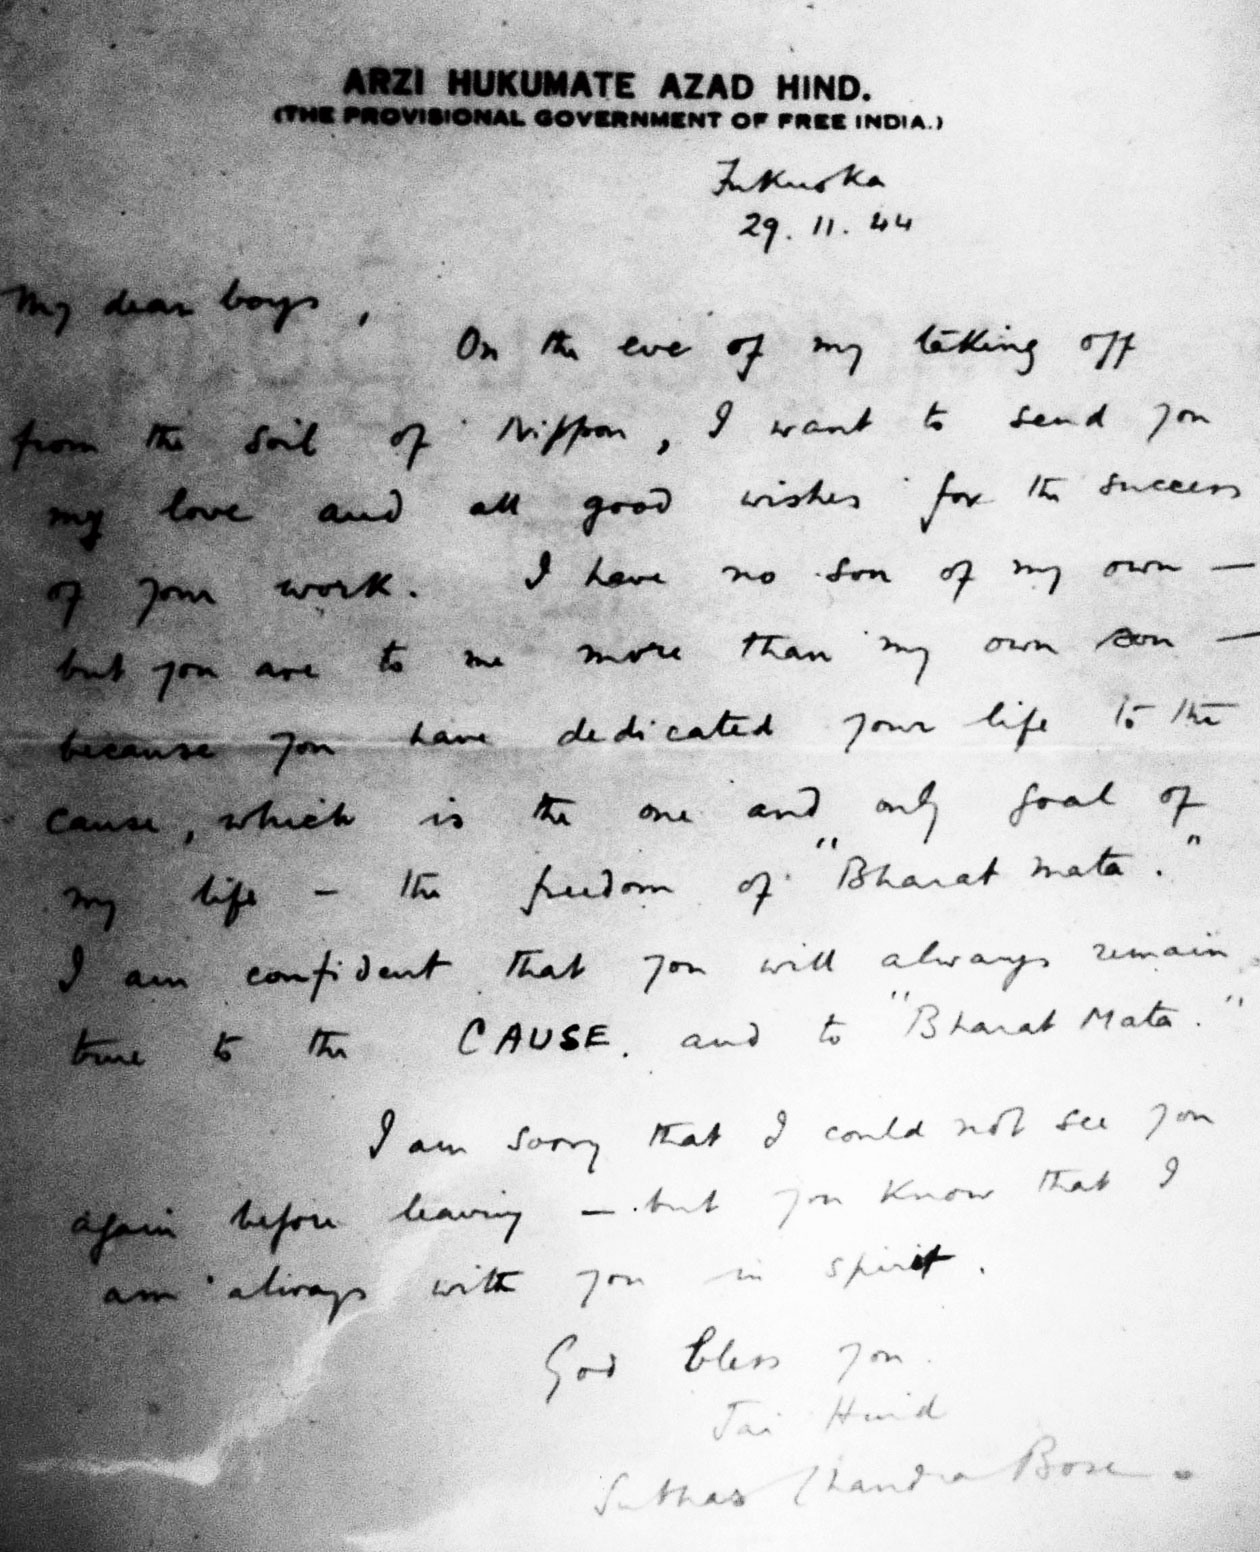 ARZI HUKUMATE AZAD HIND.
(THE PROVISIONAL GOVERNMENT OF FREE INDIA.)
Fukuoka
29. 11. 44
My dear boys,
On the eve of my taking off
from the soil of Nippon, I want to send you
my love and all good wishes for the success
of your work. I have no son of my own —
but you are to me more than my own son —
because you have dedicated your life to the
cause, which is the one and only goal of
my life — the freedom of "Bharat Mata."
I am confident that you will always remain
true to the CAUSE. and to "Bharat Mata."
I am sorry that I could not see you
again before leaving — but you know that I
am always with you in spirit.
God bless you.
Jai Hind
Subhas Chandra Bose.